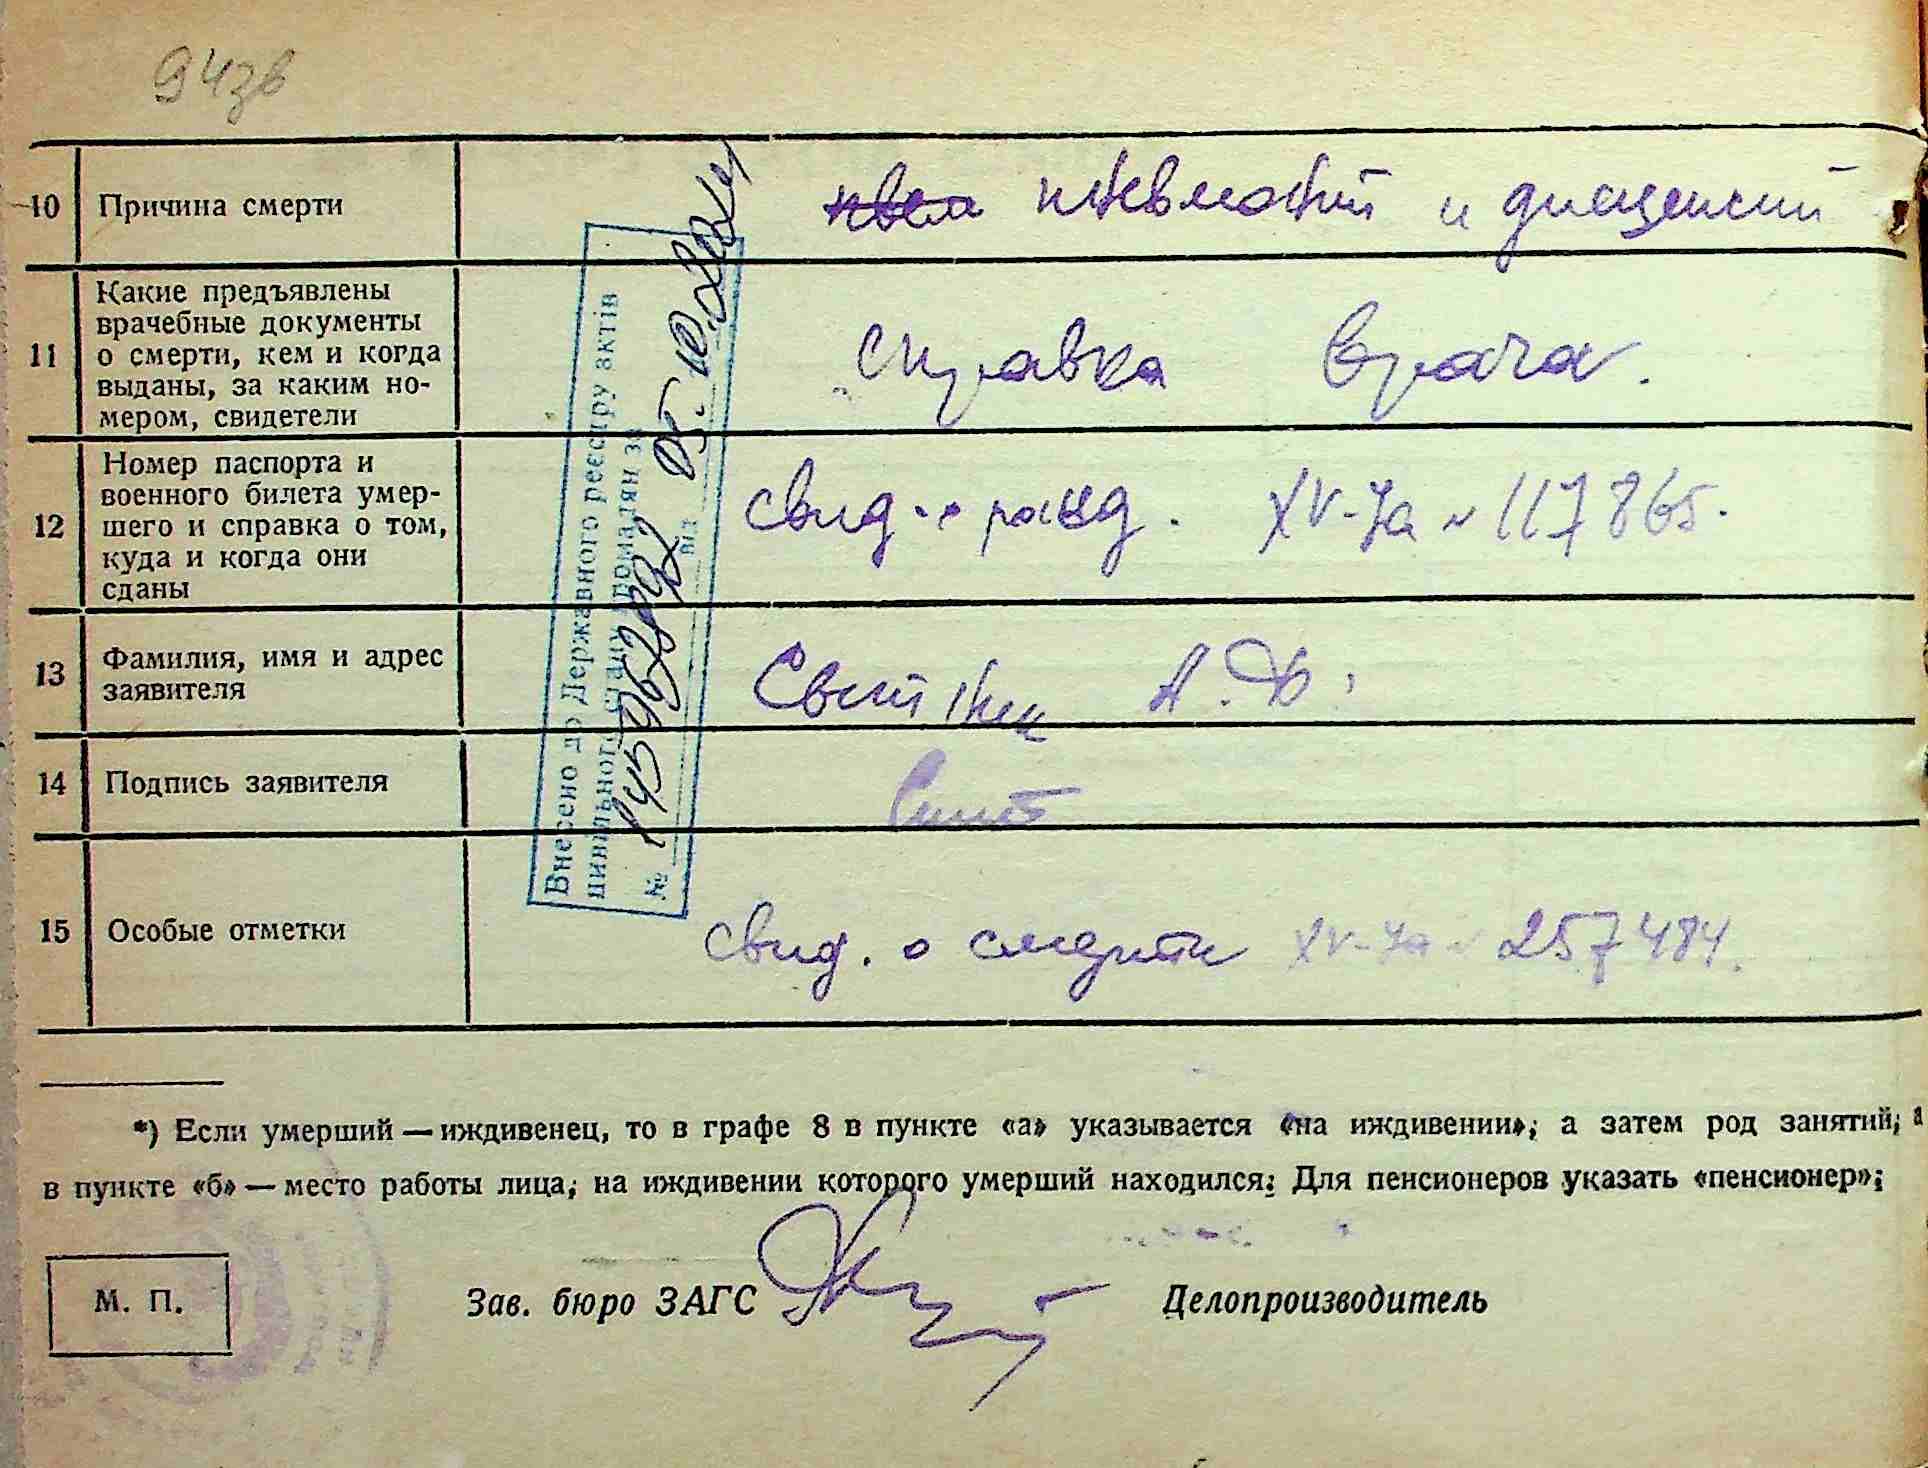 94зв
10 Причина смерти и
11 Какие предъявлены
врачебные документы
о смерти, кем и когда
выданы, за каким но-
мером, свидетели
справка врача.
12 Номер паспорта и
военного билета умер-
шего и справка о том,
куда и когда они
сданы
свид. о рожд. XV-ЧА № 117865.
13 Фамилия, имя и адрес
заявителя
А.
14 Подпись заявителя
15 Особые отметки
свид. о смерти XV-ЧА № 257484.
Внесено до Державного реєстру актів
цивільного стану громадян за
№ від 05.10.
*) Если умерший — иждивенец, то в графе 8 в пункте «а» указывается «на иждивении», а затем род занятий, а
в пункте «б» — место работы лица, на иждивении которого умерший находился. Для пенсионеров указать «пенсионер»;
М. П.
Зав. бюро ЗАГС Делопроизводитель